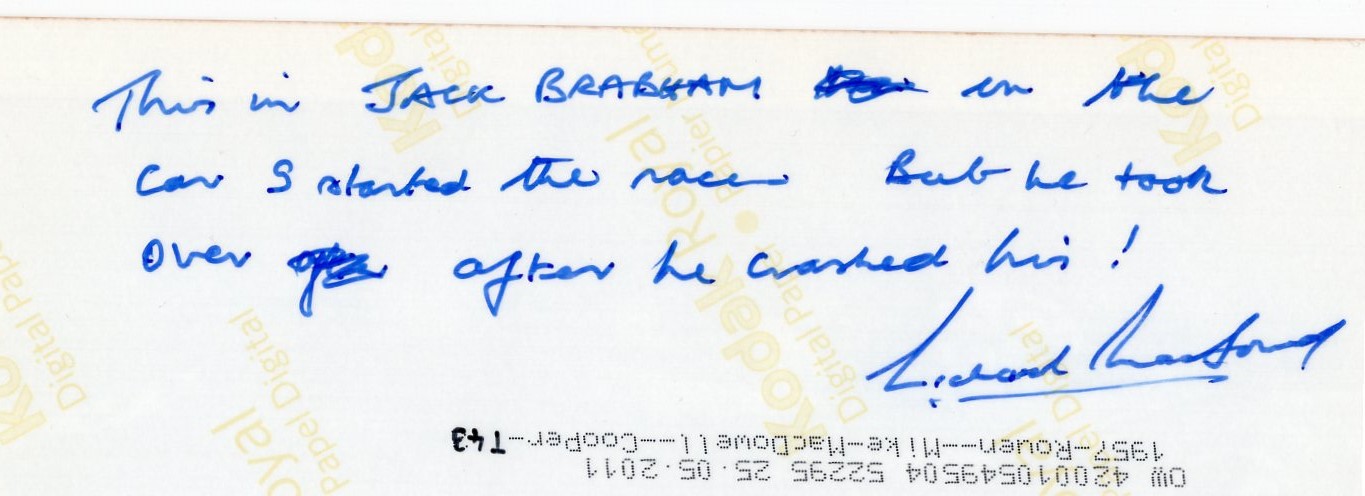 This is JACK BRABHAM in the
car I started the race But he took
over after he crashed his!
OW 420010549504 52295 25.05.2011
1957-Rouen--Mike-MacDowell--Cooper-T43
Kodak Royal
Digital Paper
Papel Digital